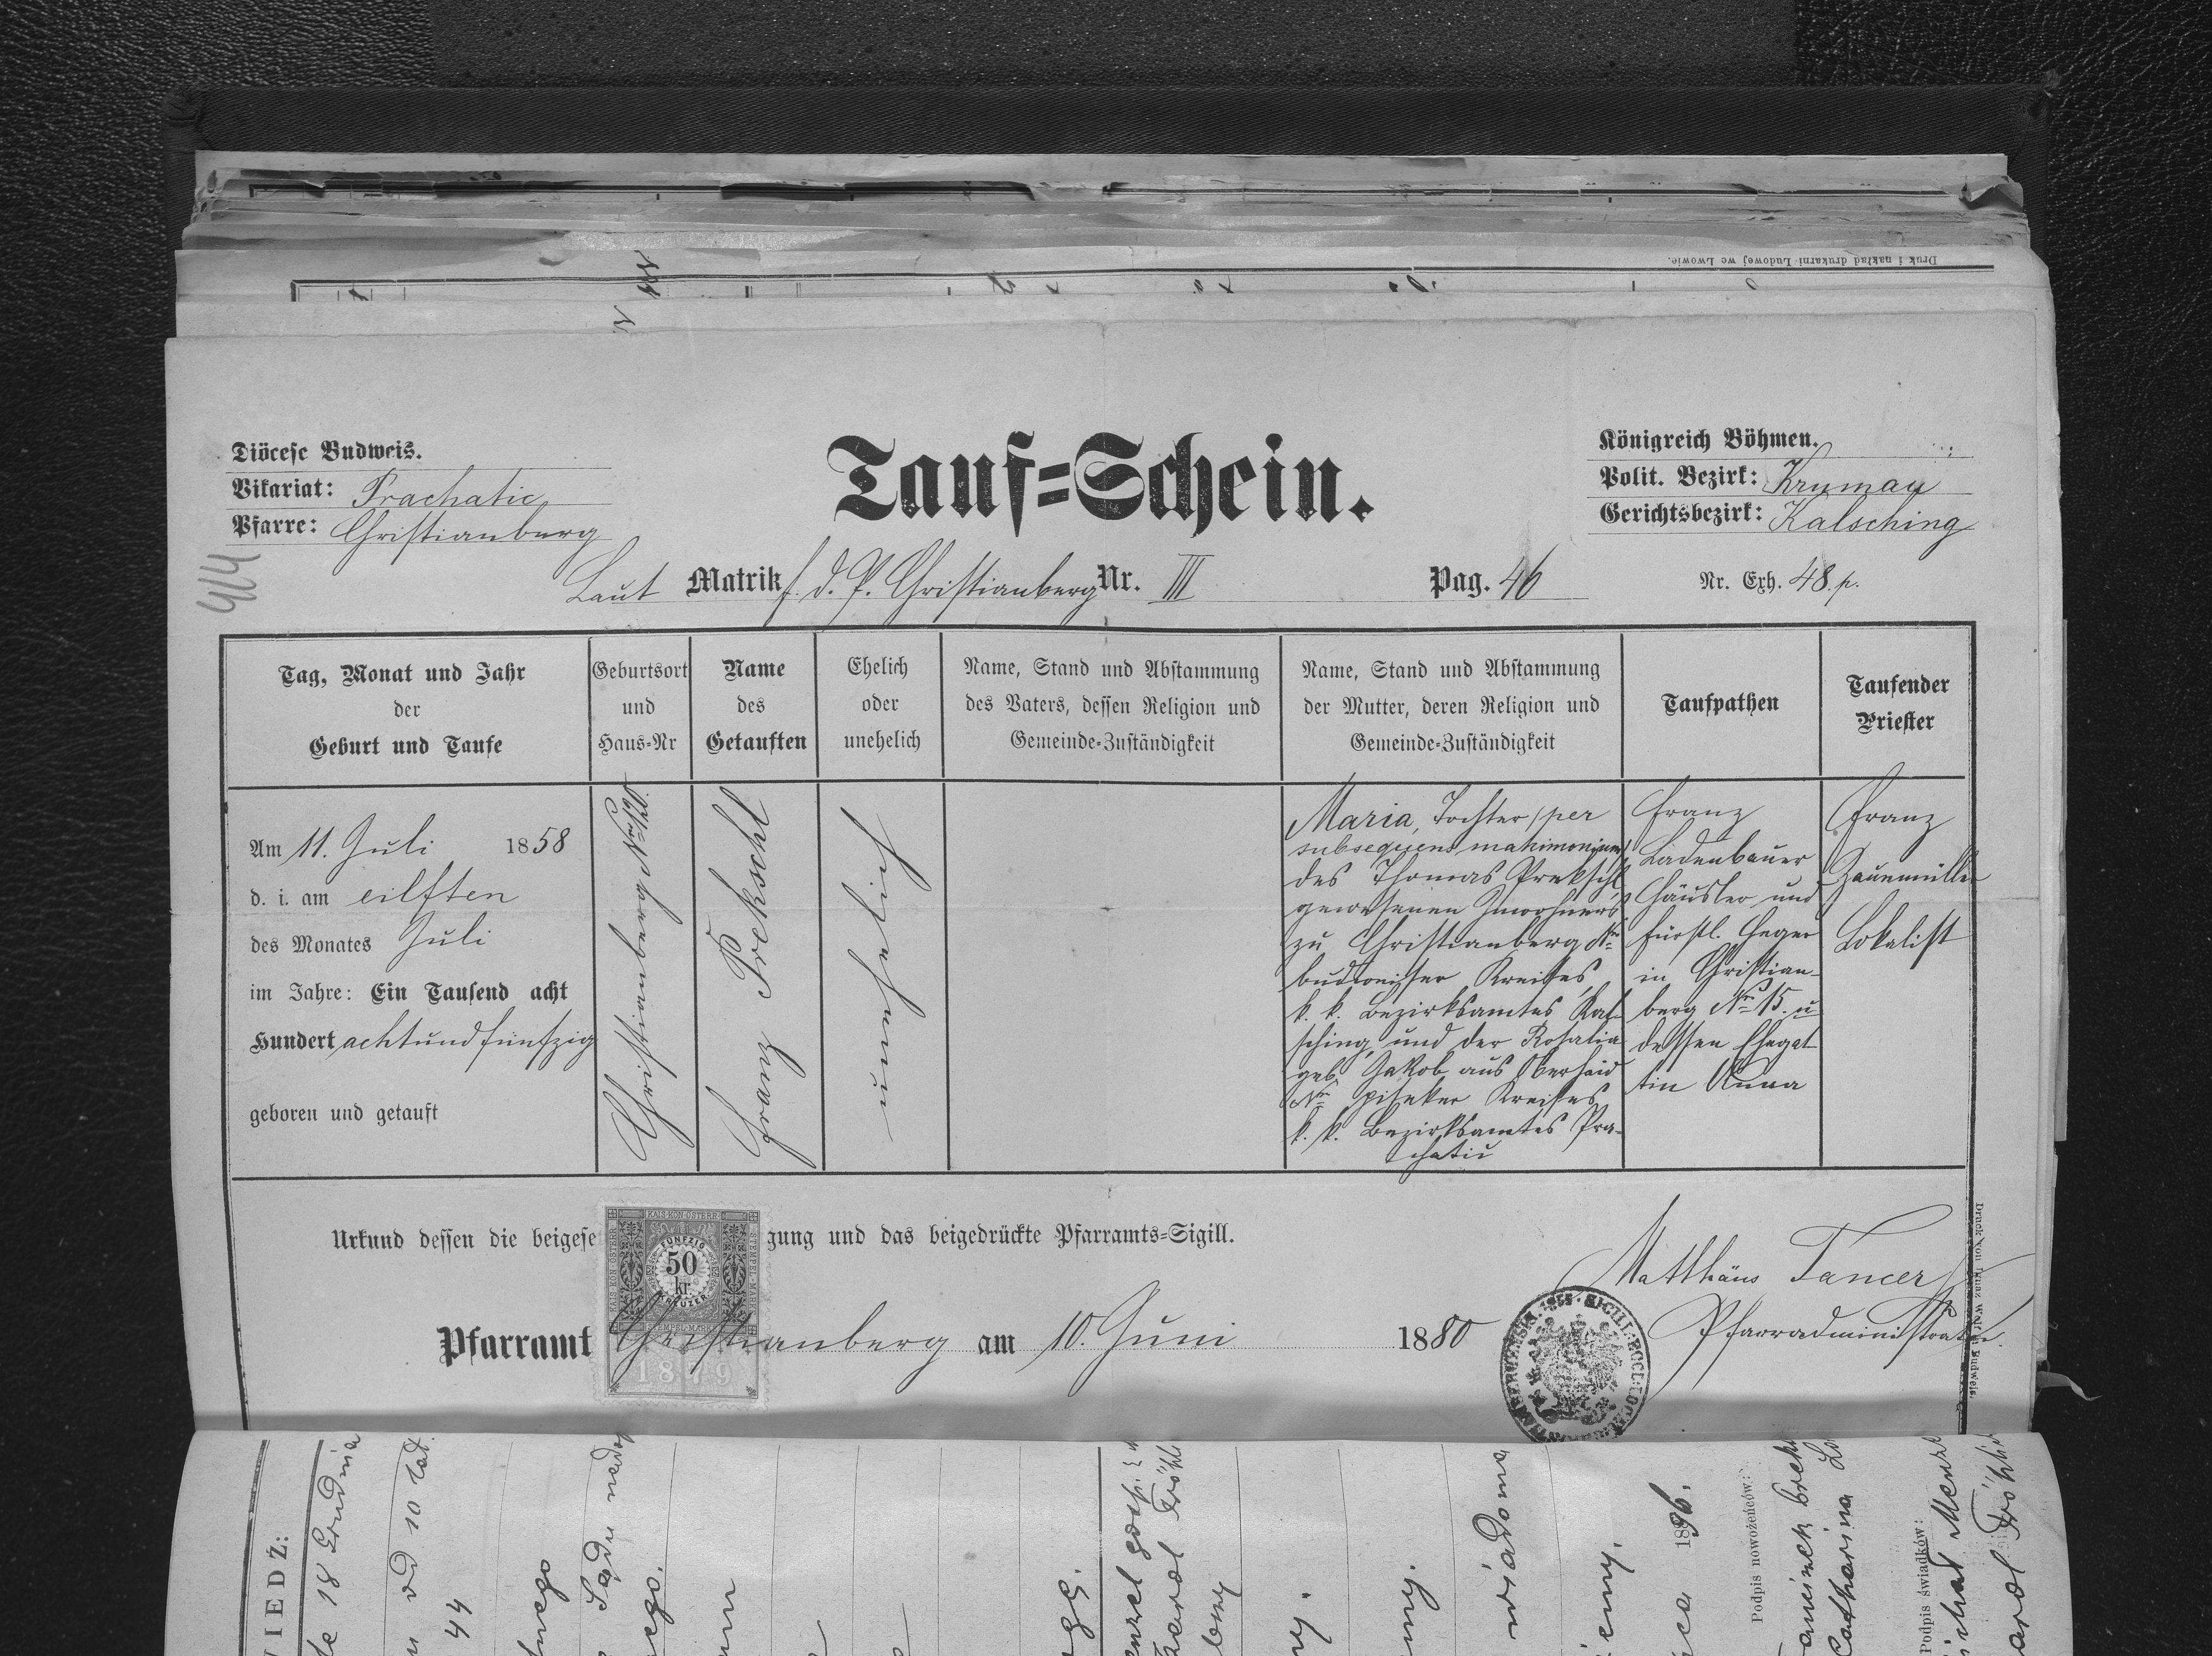 Druk i nakład drukarni Ludowej we Lwowie.
Diöcese Budweis.
Vikariat: Prachatic
Pfarre: Christianberg
Tauf=Schein.
Königreich Böhmen.
Polit. Bezirk: Krumau
Gerichtsbezirk: Kalsching
414
Laut Matrik f. d. P. Christianberg Nr. III Pag. 46 Nr. Exh. 48. p.
Tag, Monat und Jahr
der
Geburt und Taufe
Geburtsort
und
Haus-Nr
Name
des
Getauften
Ehelich
oder
unehelich
Name, Stand und Abstammung
des Vaters, dessen Religion und
Gemeinde-Zuständigkeit
Name, Stand und Abstammung
der Mutter, deren Religion und
Gemeinde-Zuständigkeit
Taufpathen
Taufender
Priester
Am 11. Juli 1858
d. i. am eilften
des Monates Juli
im Jahre: Ein Tausend acht
Hundert achtundfünfzig
geboren und getauft
Christianberg Nro 120.
Franz Prekschl
unehelich
Maria, Tochter (per
subsequens matrimonium)
des Thomas Prekschl,
gewesenen Inwohners
zu Christianberg Nr
budweiser Kreises,
k. k. Bezirksamtes Kal-
sching, und der Rosalia
geb. Jakob aus Oberhaid
Nr piseker Kreises
k. k. Bezirksamtes Pra-
chatic
Franz
Ladenbauer
Häusler und
fürstl. Heger
in Christian-
berg Nr 15. u
dessen Ehegat
tin Anna
Franz
Zaunmüller
Lokalist
Urkund dessen die beigese gung und das beigedrückte Pfarramts=Sigill.
KAIS. KÖN. ÖSTERR.
STEMPEL-MARKE
FÜNFZIG
50
kr.
KREUZER
1879
Pfarramt Christianberg am 10. Juni 1880
Matthäus Tancer
Pfarradministrator
Druck von Ignaz Wolf in Budweis.
WIEDŹ:
18 Grudnia
od 10 lat
44
Sądu
1896.
Podpis nowożeńców:
Catharina
Podpis świadków: